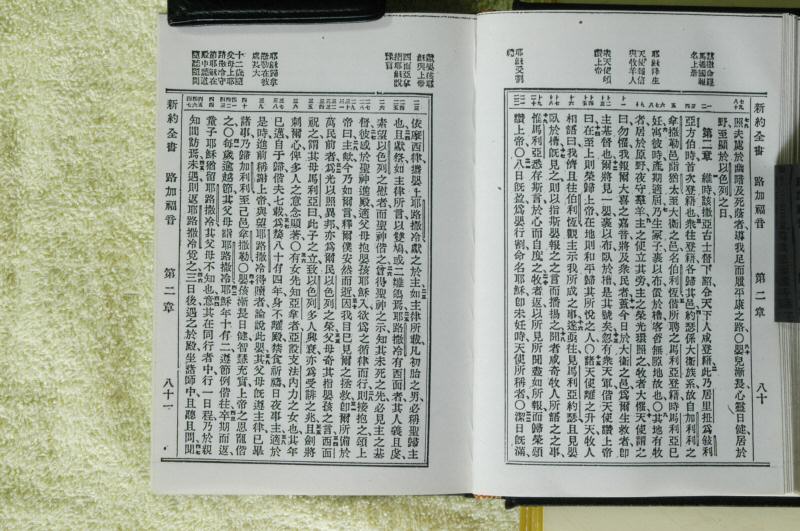 新約全書　路加福音　第二章　八十
照夫居於幽暗及死蔭者導我足而履平康之路○嬰兒漸長心靈日健居於
野至顯於以色列之日
第二章　維時該撒亞古士督下詔令天下人咸登籍此乃居里扭爲敍利
亞方伯時首次登籍也衆往登籍各歸其邑約瑟係大衛族系故自加利利之
拿撒勒邑詣猶太至大衛之邑名伯利恆偕所聘之馬利亞登籍時馬利亞已
妊寓彼時產期適屆乃生冢子裹以布置於槽客舍無隙地故也○其地有牧
者居於原野夜守羣羊主之使立其旁主之榮光環照之牧者大懼天使謂之
曰勿懼我報爾大喜之嘉音將及衆民者蓋今日於大衛之邑爲爾生救者即
主基督也爾將見一嬰裹以布臥於槽是其號矣忽有衆天軍偕天使讚上帝
曰在至上則榮歸上帝在地則和平歸其所悅之人○諸天使離之升天牧人
相語曰我儕且往伯利恆觀主示我所成之事遂亟往見馬利亞約瑟且見嬰
臥於槽既見之則以指斯嬰報之之言而播揚之聞者咸奇牧人所語之之事
惟馬利亞悉存斯言於心而自度之牧者返以所見所聞盡如所報而歸榮頌
讚上帝○八日既盈爲嬰行割命名耶穌即未妊時天使所稱者○潔日既滿
依摩西律攜嬰上耶路撒冷獻之於主如主律所載凡初胎之男必稱聖歸主
也且獻祭如主律所言以雙鳩或二雛鴿焉耶路撒冷有西面者其人義且虔
素望以色列之慰者而聖神偕之曾得聖神之示知其未死之先必見主之基
督彼感於聖神進殿適父母抱嬰孩耶穌入欲爲之循律而行則接抱之頌上
帝曰主歟今乃如爾言釋僕安然而逝因我目已見爾之拯救即爾所備於
萬民前者爲光以照異邦亦爲爾民以色列之榮父母奇其指嬰孩之言西面
祝之謂其母馬利亞曰此子之立致以色列多人興衰亦爲受誹之兆且劍將
刺爾心俾多人之意念顯著○有女先知亞拿者亞設支法內力之女也其年
已邁自于歸偕夫七載爲嫠八十有四年身不離殿禁食祈禱日夜事主適於
是時進前稱謝上帝與望耶路撒冷得贖者論說此嬰其父母既遵主律已畢
諸事乃歸加利利至己邑拿撒勒○嬰孩漸長日健智慧充實上帝之恩寵偕
之○每歲逾越節其父母詣耶路撒冷耶穌年十有二遵節例偕往卒期而返
童子耶穌猶留耶路撒冷其父母不知也意其在同行者中行一日程乃於親
知間訪焉未遇則返耶路撒冷覓之三日後遇之於殿坐諸師中且聽且問聞
新約全書　路加福音　第二章　八十一